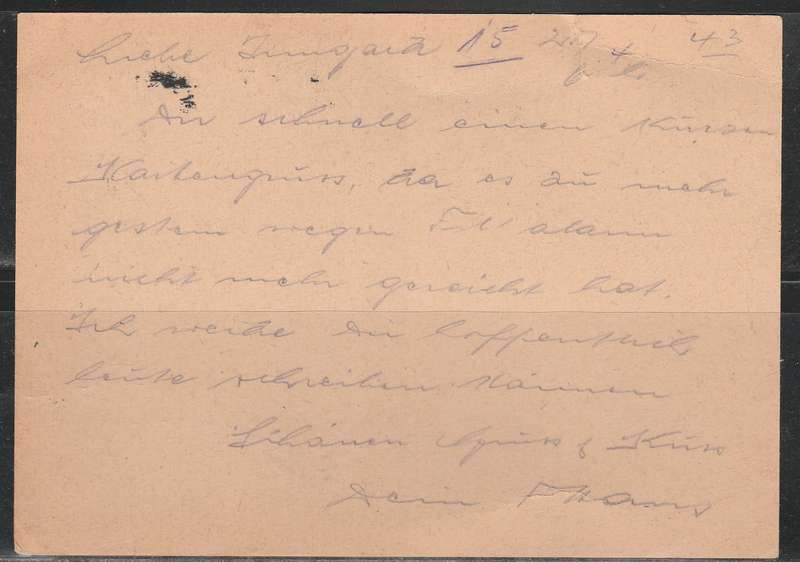 Liebe Irmgard 15 4 43
Dir schnell einen kurzen
Kartengruss, da es zu mehr
gestern wegen alarm
nicht mehr gereicht hat.
Ich werde Dir hoffentlich
heute schreiben können
Schönen Gruss & Kuss
Dein Hans